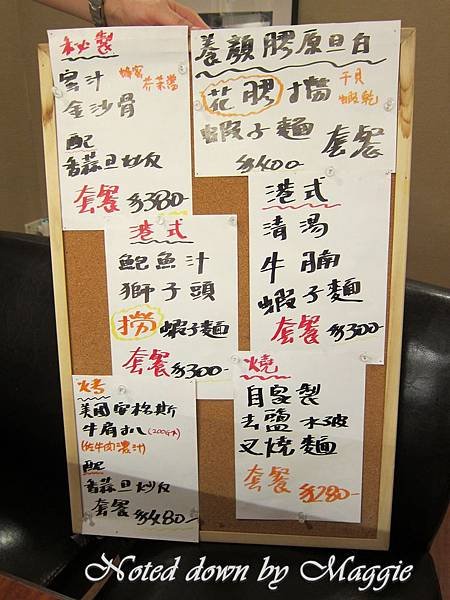 秘製
蜜汁 蜂蜜
芥菜醬
金沙骨
配
香蒜旦炒反
套餐 $380-
養顏膠原旦白
花膠撈 干貝
蝦乾
蝦子麵
套餐
$400-
港式
鮑魚汁
獅子頭
撈 蝦子麵
套餐 $300-
港式
清湯
牛腩
蝦子麵
套餐 $300-
烤
美國安格斯
牛肩扒 (200G大)
(佐牛肉濃汁)
配
香蒜旦炒反
套餐 $480-
燒
自家製
去鹽 木破
叉燒麵
套餐 $280-
Noted down by Maggie